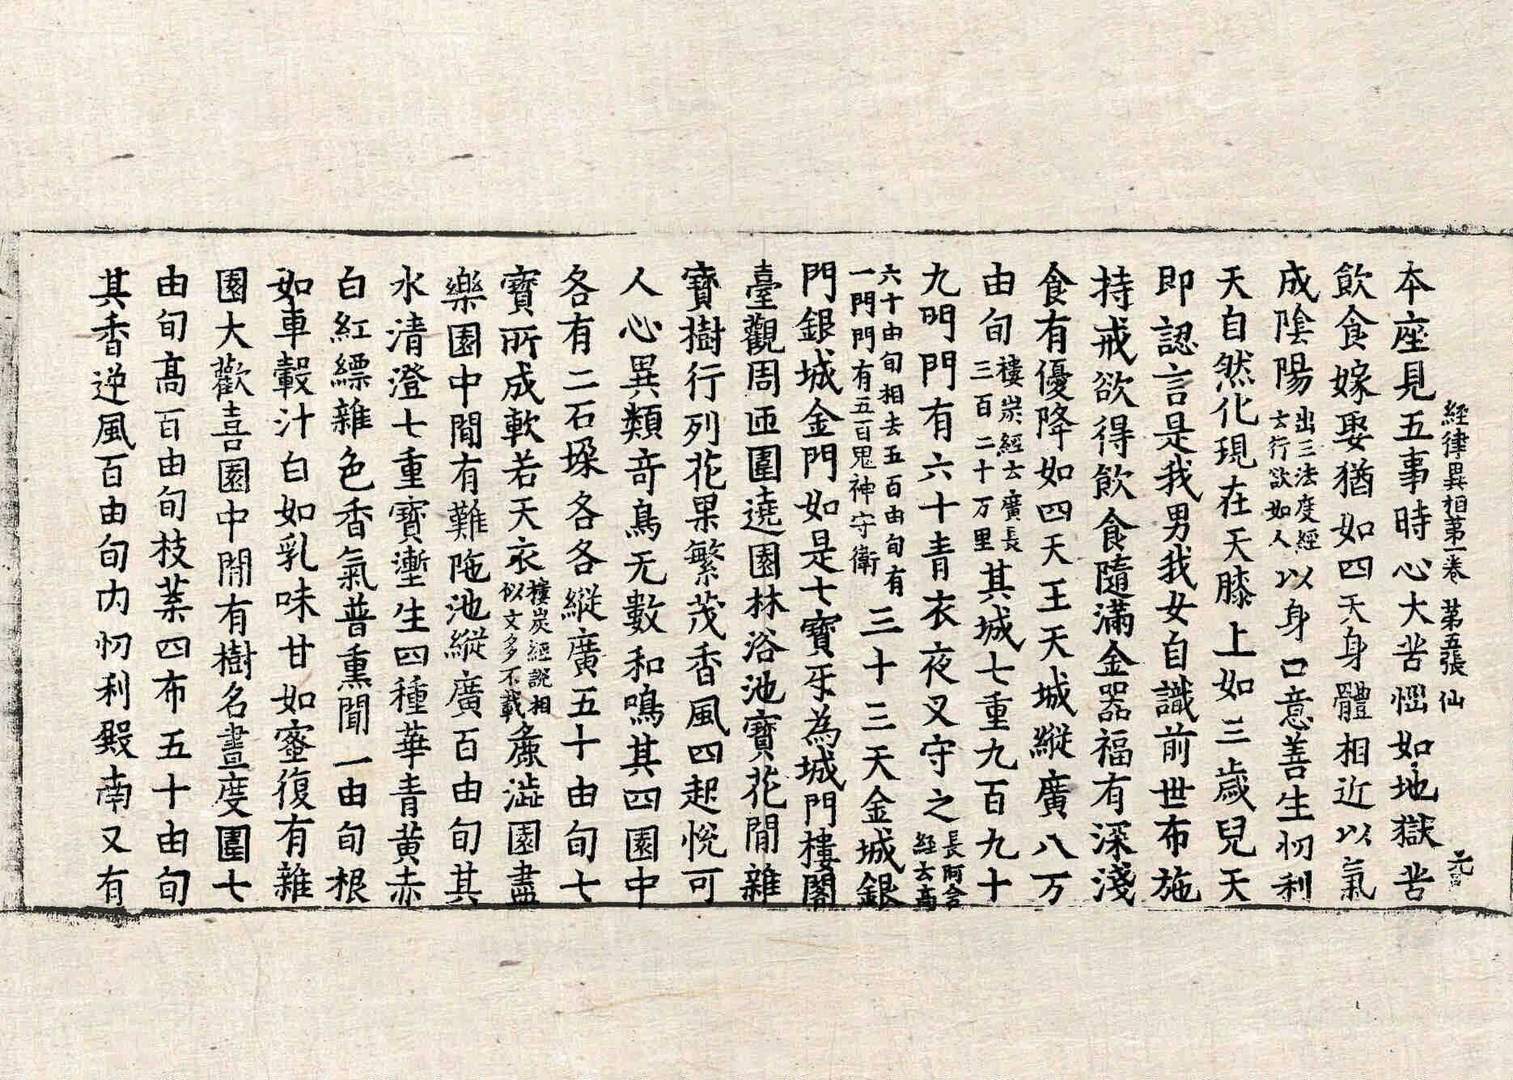 經律異相第一卷 第五張 仙
本座見五事時心大苦惱如地獄苦
飲食嫁娶猶如四天身體相近以氣
成陰陽出三法度經云行欲如人以身口意善生忉利
天自然化現在天膝上如三歲兒天
即認言是我男我女自識前世布施
持戒欲得飲食隨滿金器福有深淺
食有優降如四天王天城縱廣八万
由旬樓炭經云廣長三百二十万里其城七重九百九十
九門門有六十青衣夜叉守之長阿含經云高
六十由旬相去五百由旬有一門門有五百鬼神守衛三十三天金城銀
門銀城金門如是七寶牙為城門樓閣
臺觀周匝圍遶園林浴池寶花間雜
寶樹行列花果繁茂香風四起悅可
人心異類奇鳥无數和鳴其四園中
各有二石垜各各縱廣五十由旬七
寶所成軟若天衣樓炭經說相似文多不載麁澁園盡
樂園中間有難陁池縱廣百由旬其
水清澄七重寶壍生四種華青黃赤
白紅縹雜色香氣普熏聞一由旬根
如車轂汁白如乳味甘如蜜復有雜
園大歡喜園中間有樹名晝度圍七
由旬高百由旬枝葉四布五十由旬
其香逆風百由旬內忉利殿南又有